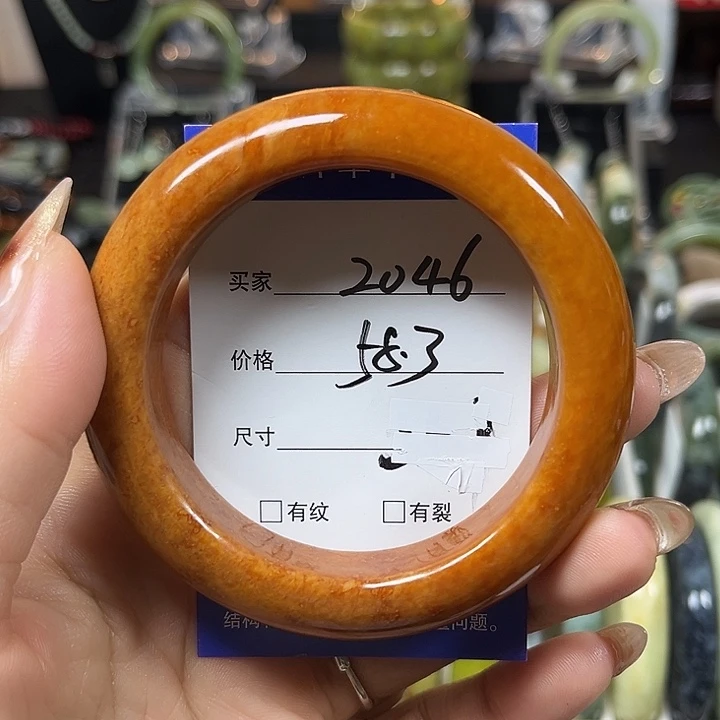 买家 2046
价格 58.3
尺寸
□有纹 □有裂
结构 问题。